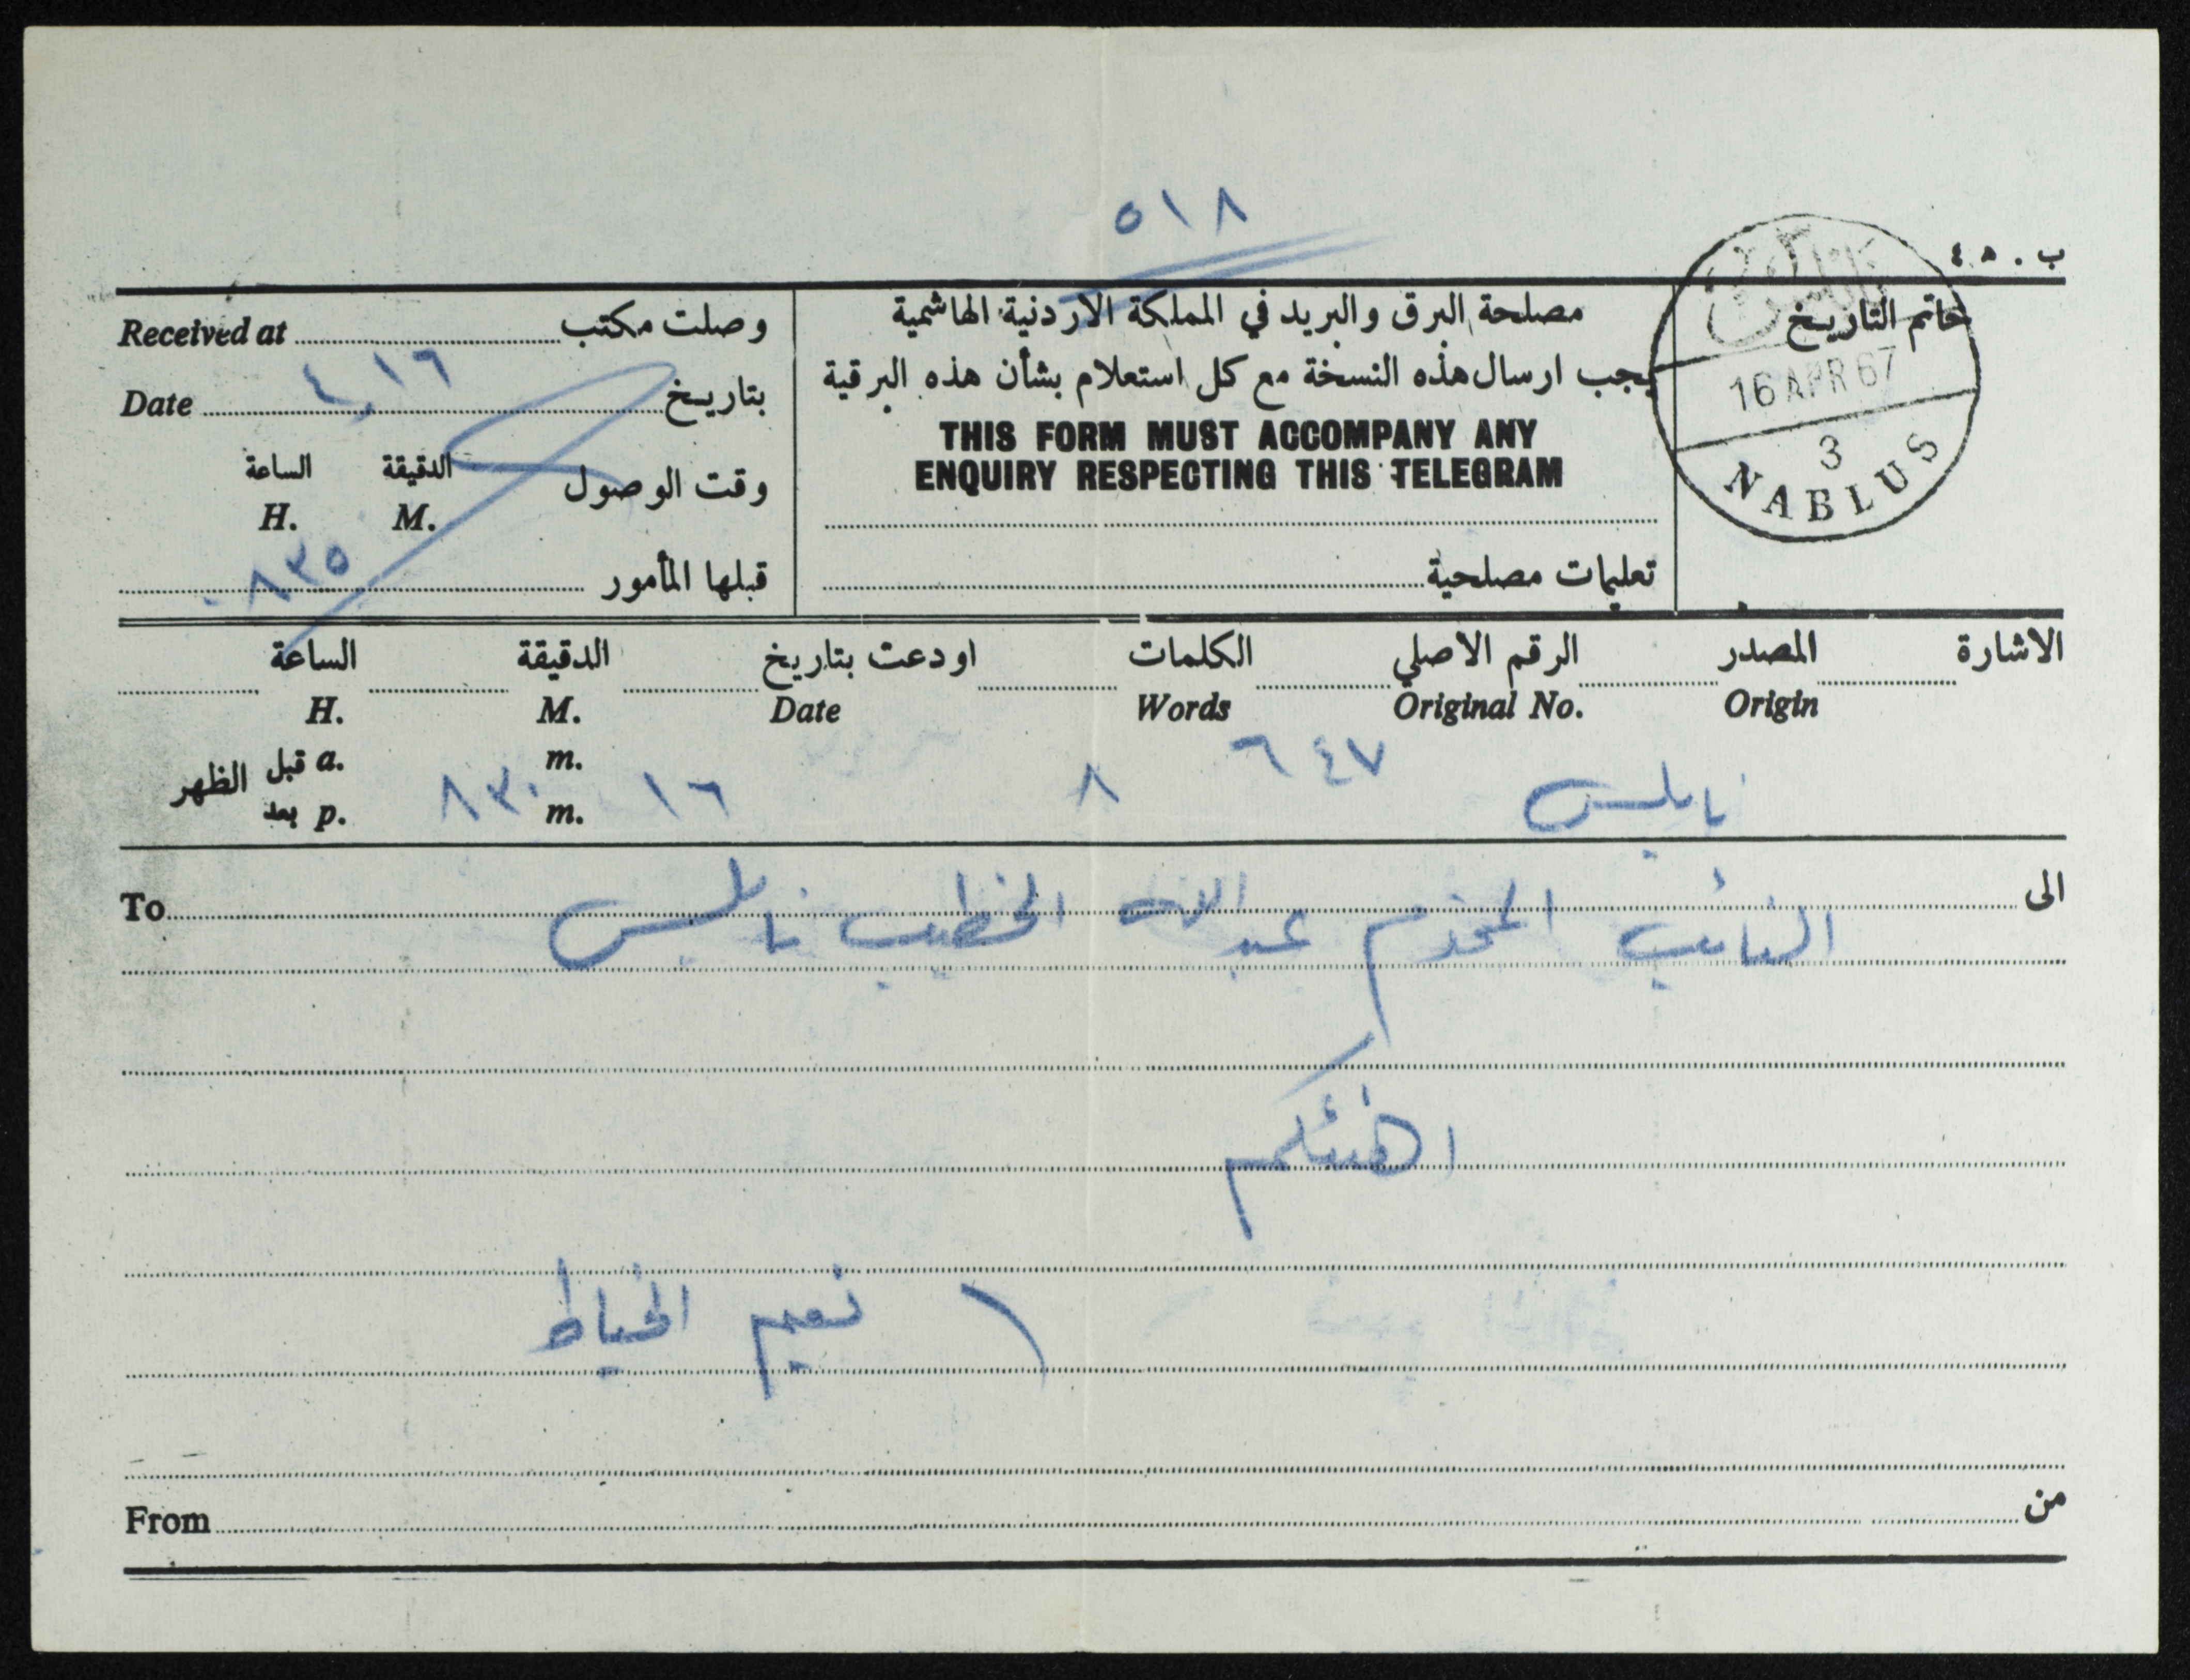 ٥١٨
ب . ٤٥
نابلس
خاتم التاريخ
16 APR 67
3
NABLUS
مصلحة البرق والبريد في المملكة الاردنية الهاشمية
يجب ارسال هذه النسخة مع كل استعلام بشأن هذه البرقية
THIS FORM MUST ACCOMPANY ANY
ENQUIRY RESPECTING THIS TELEGRAM
تعليمات مصلحية
وصلت مكتب Received at
بتاريخ ١٦ ٤ Date
وقت الوصول الدقيقة الساعة
M. H.
قبلها المأمور ٨٣٥
الاشارة المصدر الرقم الاصلي الكلمات اودعت بتاريخ الدقيقة الساعة
Origin Original No. Words Date M. H.
نابلس ٦٤٧ ٨ ١٦ ٨٣٠
m. a. قبل الظهر
m. p. بعد
الى To
النائب المحترم عبد الخطيب نابلس
اهنئكم
نعيم الخياط
من From